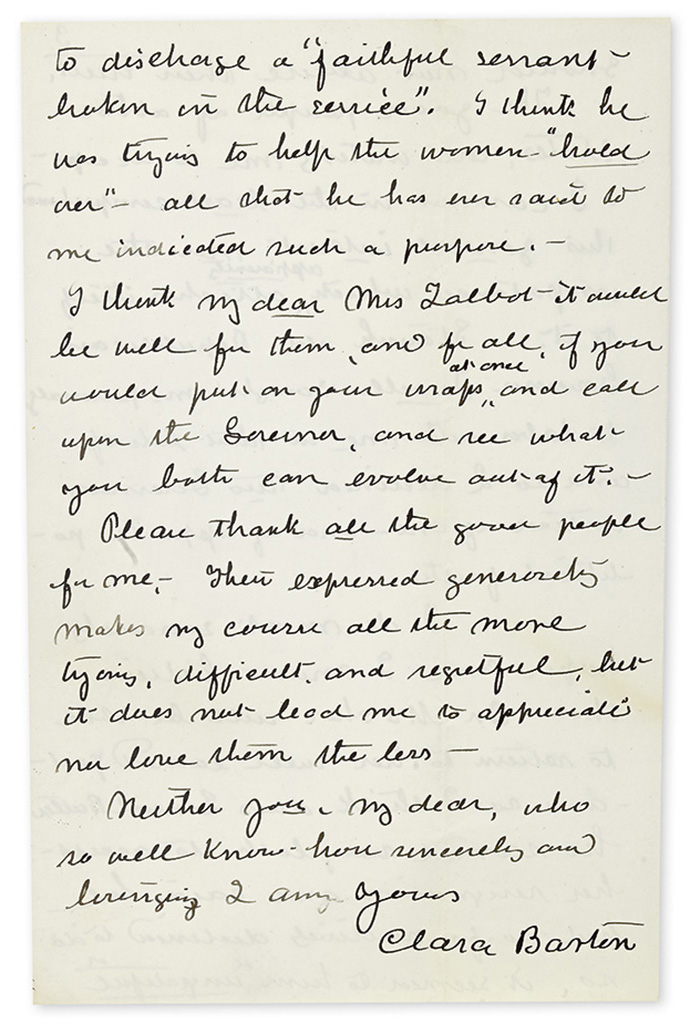 to discharge a "faithful servant-
broken in the service". I think he
was trying to help the women "hold
over" - all that he has ever said to
me indicated such a purpose. -
I think my dear Mrs Talbot - it would
be well for them, and for all, if you
would put on your wraps, at once and call
upon the Governor, and see what
you both can evolve out of it. -
Please thank all the good people
for me, - Their expressed generosity
makes my course all the more
trying, difficult, and regretful, but
it does not lead me to appreciate
nor love them the less -
Neither you, my dear, who
so well know how sincerely and
lovingly I am yours
Clara Barton